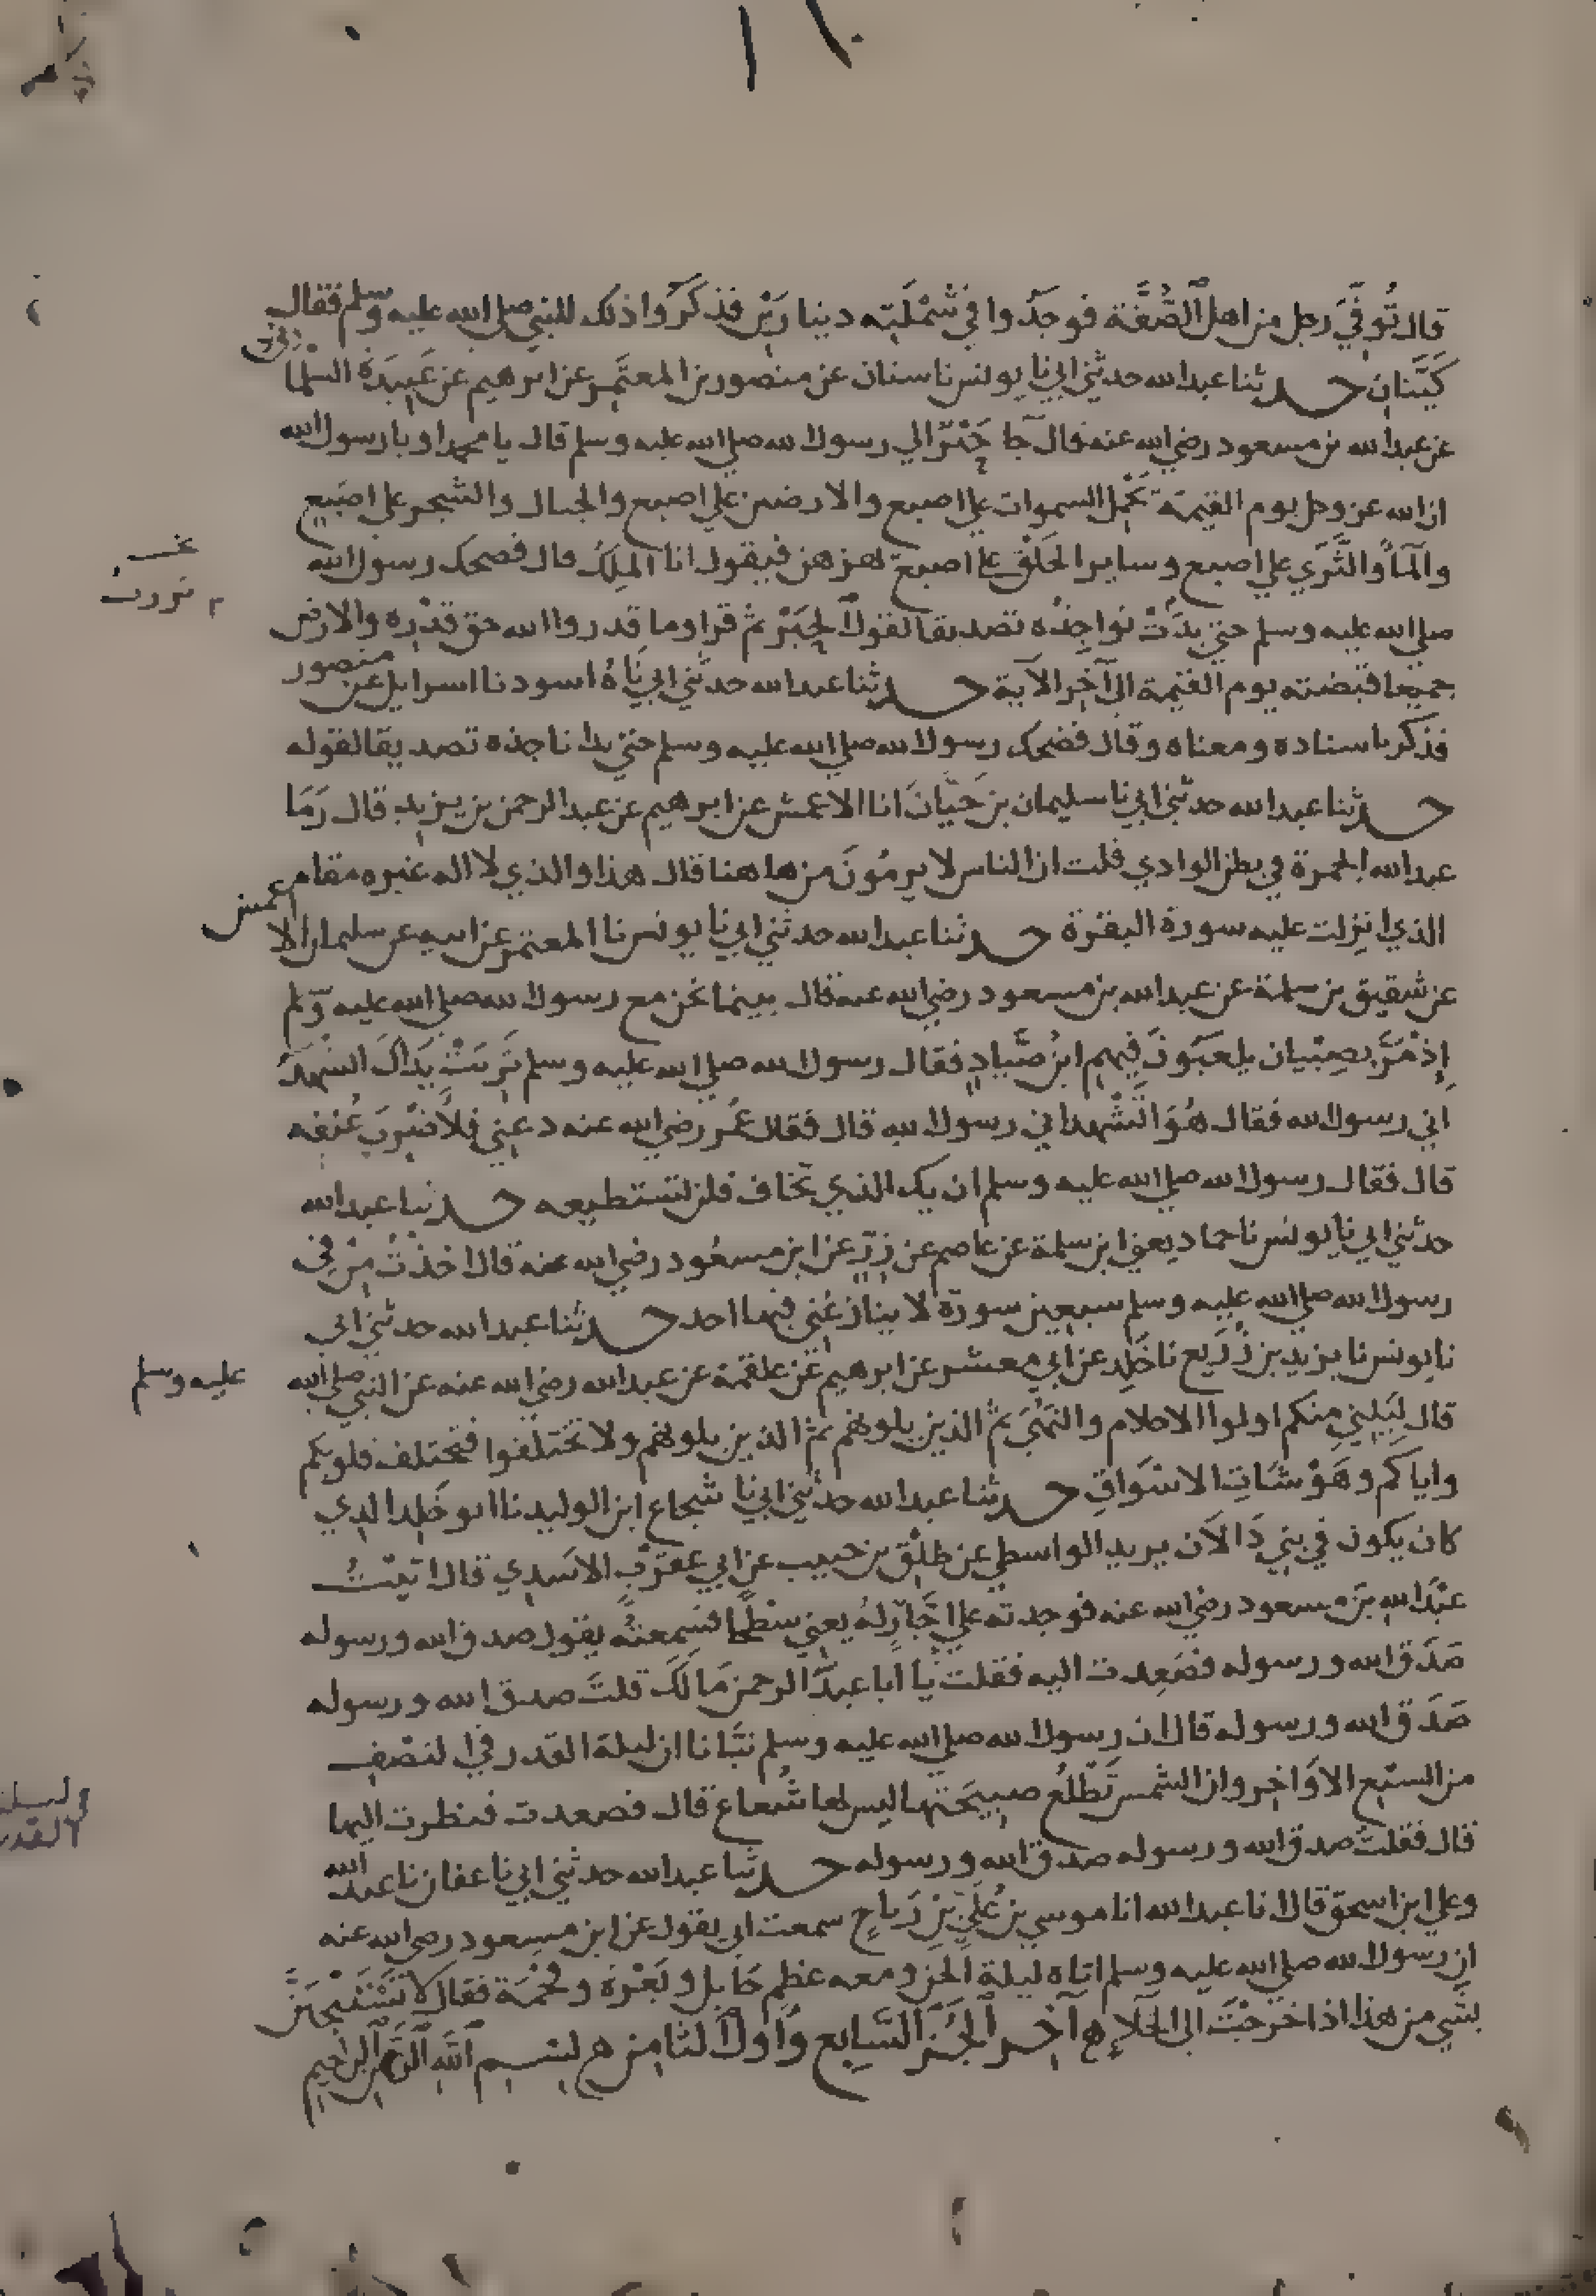 قال تُوُفِّيَ رجل من اهل الصُّفَّة فوجدوا في شَمْلَتِه دينارَيْن فذكروا ذلك للنبي صلى الله عليه وسلم فقال
كَيَّتان حدثنا عبد الله حدثني ابي نا يونس نا سنان عن منصور بن المعتمِر عن ابرهيم عن عَبِيدَة السلما
ني
عن عبد الله بن مسعود رضي الله عنه قال جا حَبْر الي رسول الله صلى الله عليه وسلم قال يا محمد او يا رسول الله
ان الله عز وجل يوم القيمة يحمل السموات علي اصبع والارضين علي اصبع والجبال والشجر علي اصبع
والمآ والثَّرَي علي اصبع وساير الخَلْق علي اصبع يهزهن فيقول انا الملِك قال فضحك رسول الله
صلى الله عليه وسلم حتي بدَت نواجذُه تصديقا لقول الحَبْر ثم قرا وما قدروا الله حق قَدْره والارض
جميعا قبضته يوم القيمة الي آخر الآية حدثنا عبد الله حدثني ابي ناهُ اسود نا اسرايل عن منصور
فذكر باسناده ومعناه وقال فضحك رسول الله صلى الله عليه وسلم حتي بدا ناجذه تصديقا لقوله
حدثنا عبد الله حدثني ابي نا سليمان بن حَيَّان انا الاعمش عن ابرهيم عن عبد الرحمن بن يزيد قال رَمَا
عبد الله الجمرة في بطن الوادي قلت ان الناس لا يرمُونَ من هاهنا قال هذا والذي لا اله غيره مقام
الذي انزِلت عليه سورة البقرة حدثنا عبد الله حدثني ابي نا يونس نا المعتمر عن ابيه عن سليمان الا
عمش
عن شقيق بن سلمة عن عبد الله بن مسعود رضي الله عنه قال بينما نحن مع رسول الله صلى الله عليه وسلم
إذ مَرَّ بصِبْيان يلعبون فيهم ابنُ صَيّادٍ فقال رسول الله صلى الله عليه وسلم تَرِبَتْ يَدَاكَ اتشهد
اني رسول الله فقال هُوَ اتَشْهد اني رسول الله قال فقال عُمر رضي الله عنه دعني فلأضربَ عُنقه
قال فقال رسول الله صلى الله عليه وسلم ان يك الذي تخاف فلن تستطيعه حدثنا عبد الله
حدثني ابي نا يونس نا حماد يعني ابن سلمة عن عاصم عن زِرّ عن ابن مسعود رضي الله عنه قال اخذْتُ مِنْ في
رسول الله صلى الله عليه وسلم سبعين سورة لا ينازعُني فيها احد حدثنا عبد الله حدثني ابي
نا يونس نا يزيد بن زُرَيع نا خلد عن ابي معشر عن ابرهيم عن علقمة عن عبد الله رضي الله عنه عن النبي صلى الله
عليه وسلم
قال لِيَلِيني منكم اولوا الاحلام والنُّهَي ثم الذين يلونهم ثم الذين يلونهم ولا تختلفوا فتختلف قلوبكم
واياكم وهَوْشَاتِ الاسْوَاقِ حدثنا عبد الله حدثني ابي نا شجاع ابن الوليد نا ابو خلد الذي
كان يكون في بني دَالان يزيد الواسطي عن طلْق بن حبيب عن ابي عقرَب الاسَدي قال اتيتُ
عبْدَ الله بن مسعود رضي الله عنه فوجدته علي اِجّار لهُ يعني سطحًا فسَمِعتُه يقول صدق الله ورسوله
صَدَق الله ورسوله فصَعِدت اليه فقلت يا ابا عبد الرحمن مَا لَكَ قلتَ صدق الله ورسوله
صَدَق الله ورسوله قال ان رسول الله صلى الله عليه وسلم نبَّانا ان ليلة القدر في النصْف
من السبْع الاوَاخِر وان الشمس تَطْلُع صبيحتها ليس لها شُعاع قال فصعدت فنظرت اليها
قال فقلت صدق الله ورسوله صدق الله ورسوله حدثنا عبد الله حدثني ابي نا عفان نا عبد الله
وعلي ابن اسحق قالا نا عبد الله انا موسي بن عُلَيّ بن رَباح سمعت ابي يقول عن ابن مسعود رضي الله عنه
ان رسول الله صلى الله عليه وسلم اتاه ليلة الجن ومعه عظم حَايل وبَعْرة وفَحْمَة فقال لا تَسْتَنْجِيَنَّ
بشي من هذا اذا خرَجْتَ الي الخلاءِ ه آخر الجُزء السَّابع وَاول الثامن ه بسم الله الرحمن الرحيم
ليلة
القدر